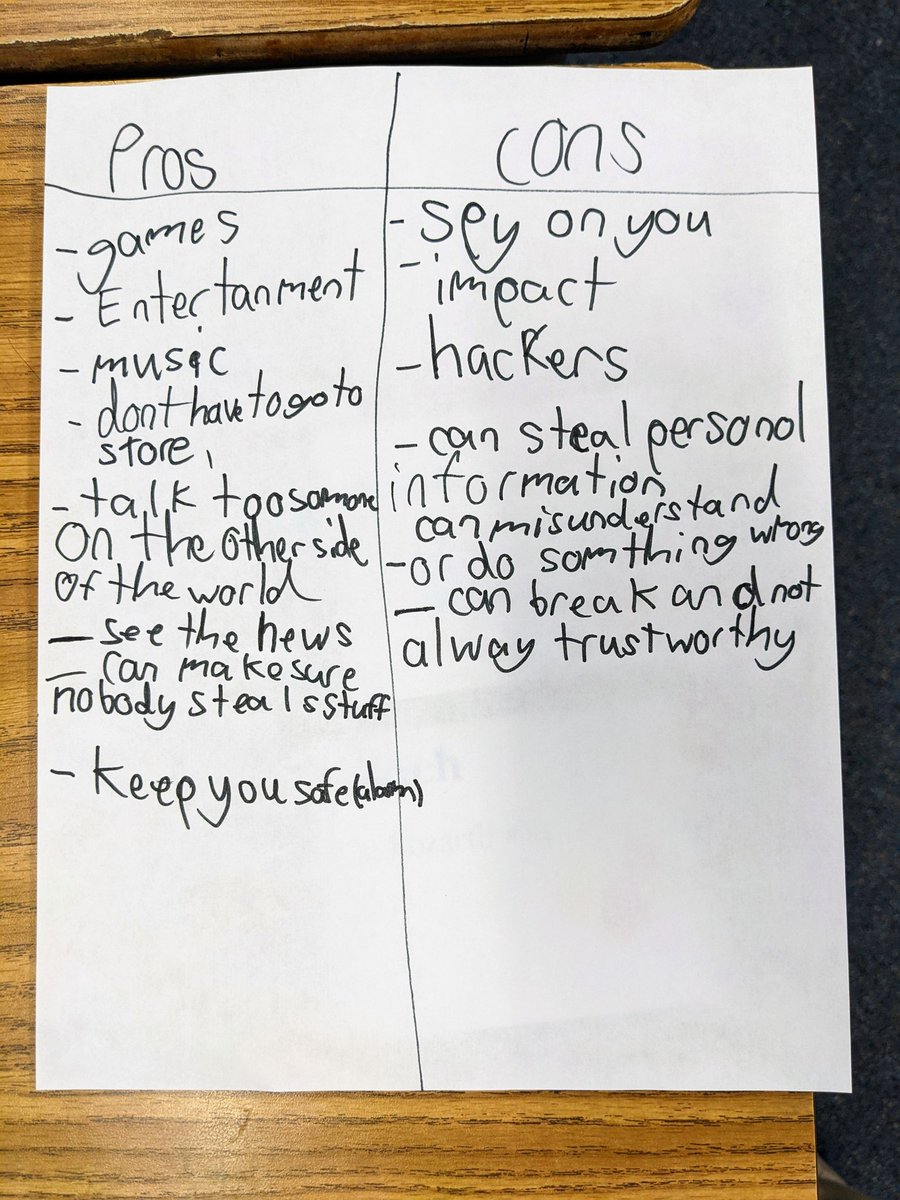 Pros
- games
- Entertanment
- music
- dont have to go to
store,
- talk too somone
On the other side
of the world
- see the news
- can make sure
nobody steals stuff
- keep you safe (alarm)
cons
- spy on you
- impact
- hackers
- can steal personal
information
can misunderstand
- or do somthing wrong
- can break and not
alway trustworthy